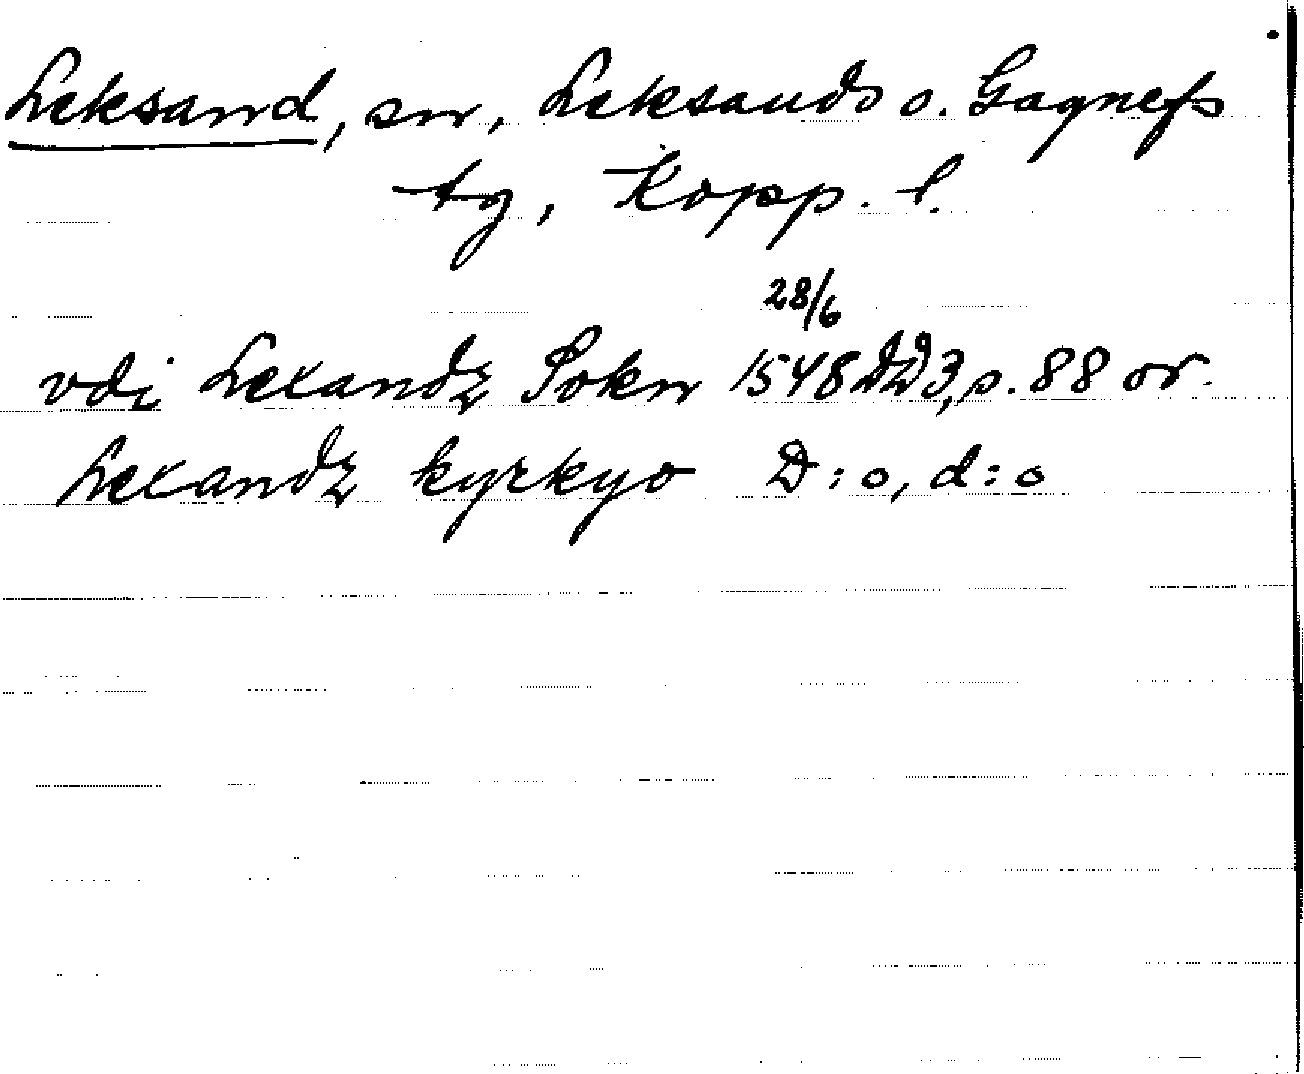 Leksand, sn, Leksands o. Gagnefs
tg, Kopp. l.
28/6
vdi Lexandz Sokn 1548 DD 3, s. 88 or.
Lexandz kyrkyo D:o, d:o